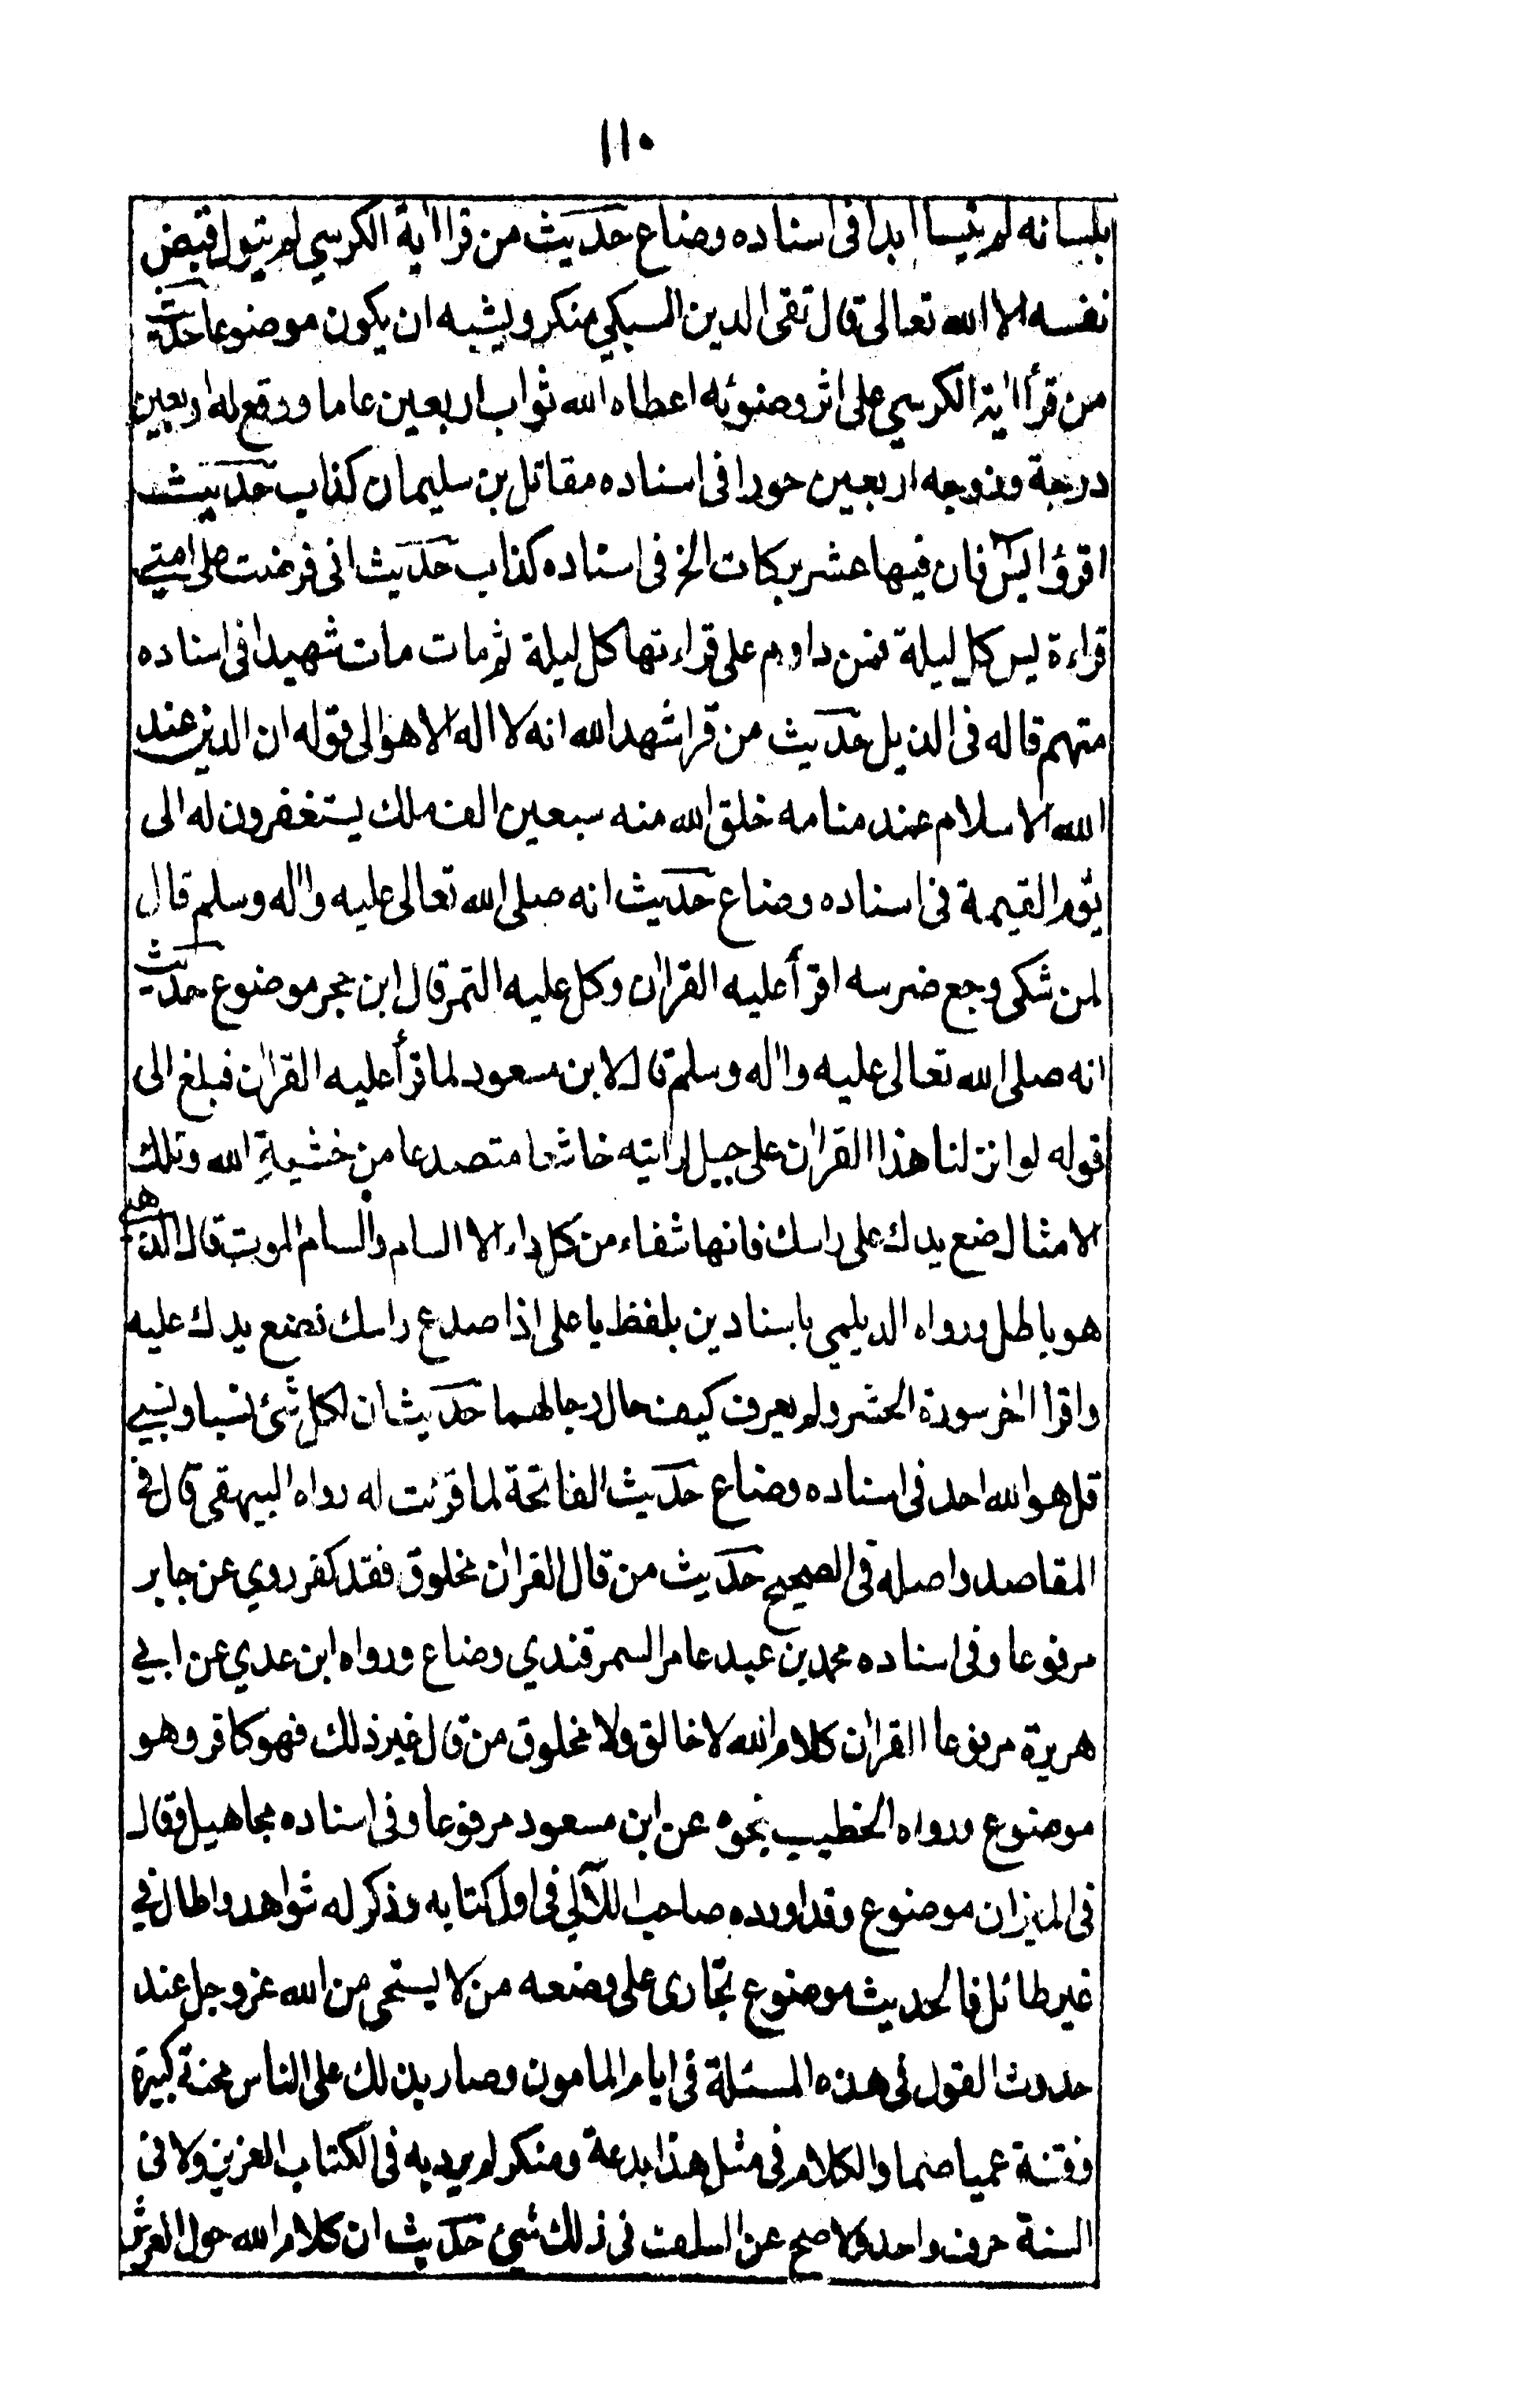 ١١٠
بلسانه لم ينسا ابدا فى اسناده وضاع حديث من قرا اٰية الكرسي لم يتول قبض
نفسه الا الله تعالى قال تقى الدين السبكي منكر ويشبه ان يكون موضوعا حديث
من قرأ اٰية الكرسي على اثر وضوئه اعطاه الله ثواب اربعين عاما ورفع له اربعين
درجة وزوجه اربعين حورا فى اسناده مقاتل بن سليمان كذاب حديث
اقرؤا يٰسٓ فان فيها عشر بركات الخ فى اسناده كذاب حديث انى فرضت على امتي
قراءة يس كل ليلة فمن داوم على قراءتها كل ليلة ثم مات مات شهيدا فى اسناده
متهم قاله فى الذيل حديث من قرا شهد الله انه لا اله الا هو الى قوله ان الدين عند
الله الاسلام عند منامه خلق الله منه سبعين الف ملك يستغفرون له الى
يوم القيمة فى اسناده وضاع حديث انه صلى الله تعالى عليه واٰله وسلم قال
لمن شكى وجع ضرسه اقرأ عليه القراٰن وكل عليه التمر قال ابن حجر موضوع حديث
انه صلى الله تعالى عليه واٰله وسلم قال لابن مسعود لما قرأ عليه القراٰن فبلغ الى
قوله لو انزلنا هذا القراٰن على جبل لرايته خاشعا متصدعا من خشيةِ الله وتلك
الامثال ضع يدك على راسك فانها شفاء من كل داء الا السام والسام الموت قال الذهبي
هو باطل ورواه الديلمي باسنادين بلفظ يا على اذا صدع راسك فضع يدك عليه
واقرا اٰخر سورة الحشر ولم يعرف كيف حال رجالهما حديث ان لكل شئ نسبا ونسبي
قل هو الله احد فى اسناده وضاع حديث الفاتحة لما قرئت له رواه البيهقى قال في
المقاصد واصله فى الصحيح حديث من قال القراٰن مخلوق فقد كفر روي عن جابر
مرفوعا وفى اسناده محمد بن عبد عامر السمرقندي وضاع ورواه ابن عدي عن ابي
هريرة مرفوعا القراٰن كلام الله لا خالق ولا مخلوق من قال غير ذلك فهو كافر وهو
موضوع ورواه الخطيب نحوه عن ابن مسعود مرفوعا وفى اسناده مجاهيل فقال
فى الميزان موضوع وقد اورده صاحب اللآلي فى اول كتابه وذكر له شواهد واطال في
غير طائل فالحديث موضوع تجارى على وضعه من لا يستحى من الله عز وجل عند
حدوث القول فى هذه المسئلة فى ايام المامون وصار بذلك على الناس محنة كبيرة
وفتنة عميا صما والكلام فى مثل هذا بدعة ومنكر لم يرد به فى الكتاب العزيز ولا فى
السنة حرف واحد ولا صح عن السلف فى ذلك شيئ حديث ان كلام الله حول العرش